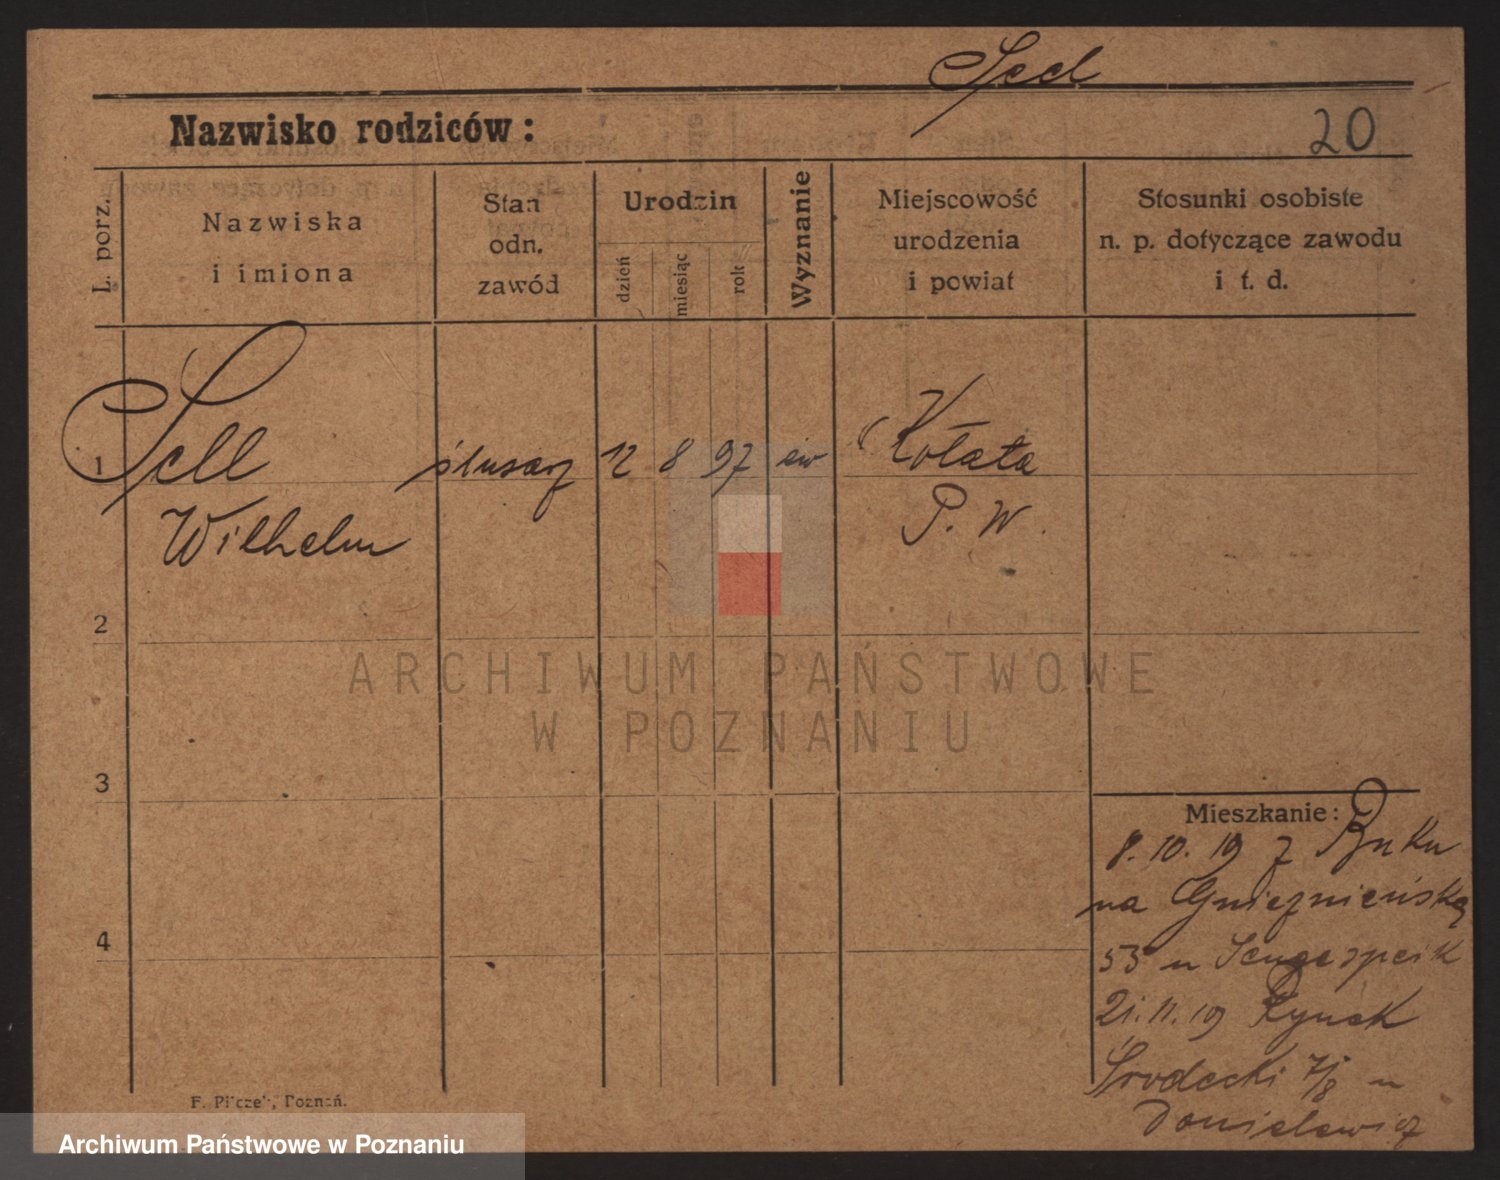 Sell
20
Nazwisko rodziców:
L. porz.
Nazwiska
i imiona
Stan
odn.
zawód
Urodzin
dzień
miesiąc
rok
Wyznanie
Miejscowość
urodzenia
i powiat
Stosunki osobiste
n. p. dotyczące zawodu
i t. d.
1 Sell ślusarz 12 8 97 ew Kołata
Wilhelm P. W.
2
ARCHIWUM PAŃSTWOWE
W POZNANIU
3
Mieszkanie:
8.10.19 z Buku
na Gnieźnieńską
53 u
4
21.11.19 Rynek
Środecki 7/8 u
Danielewicz
F. Pilczek, Poznań.
Archiwum Państwowe w Poznaniu